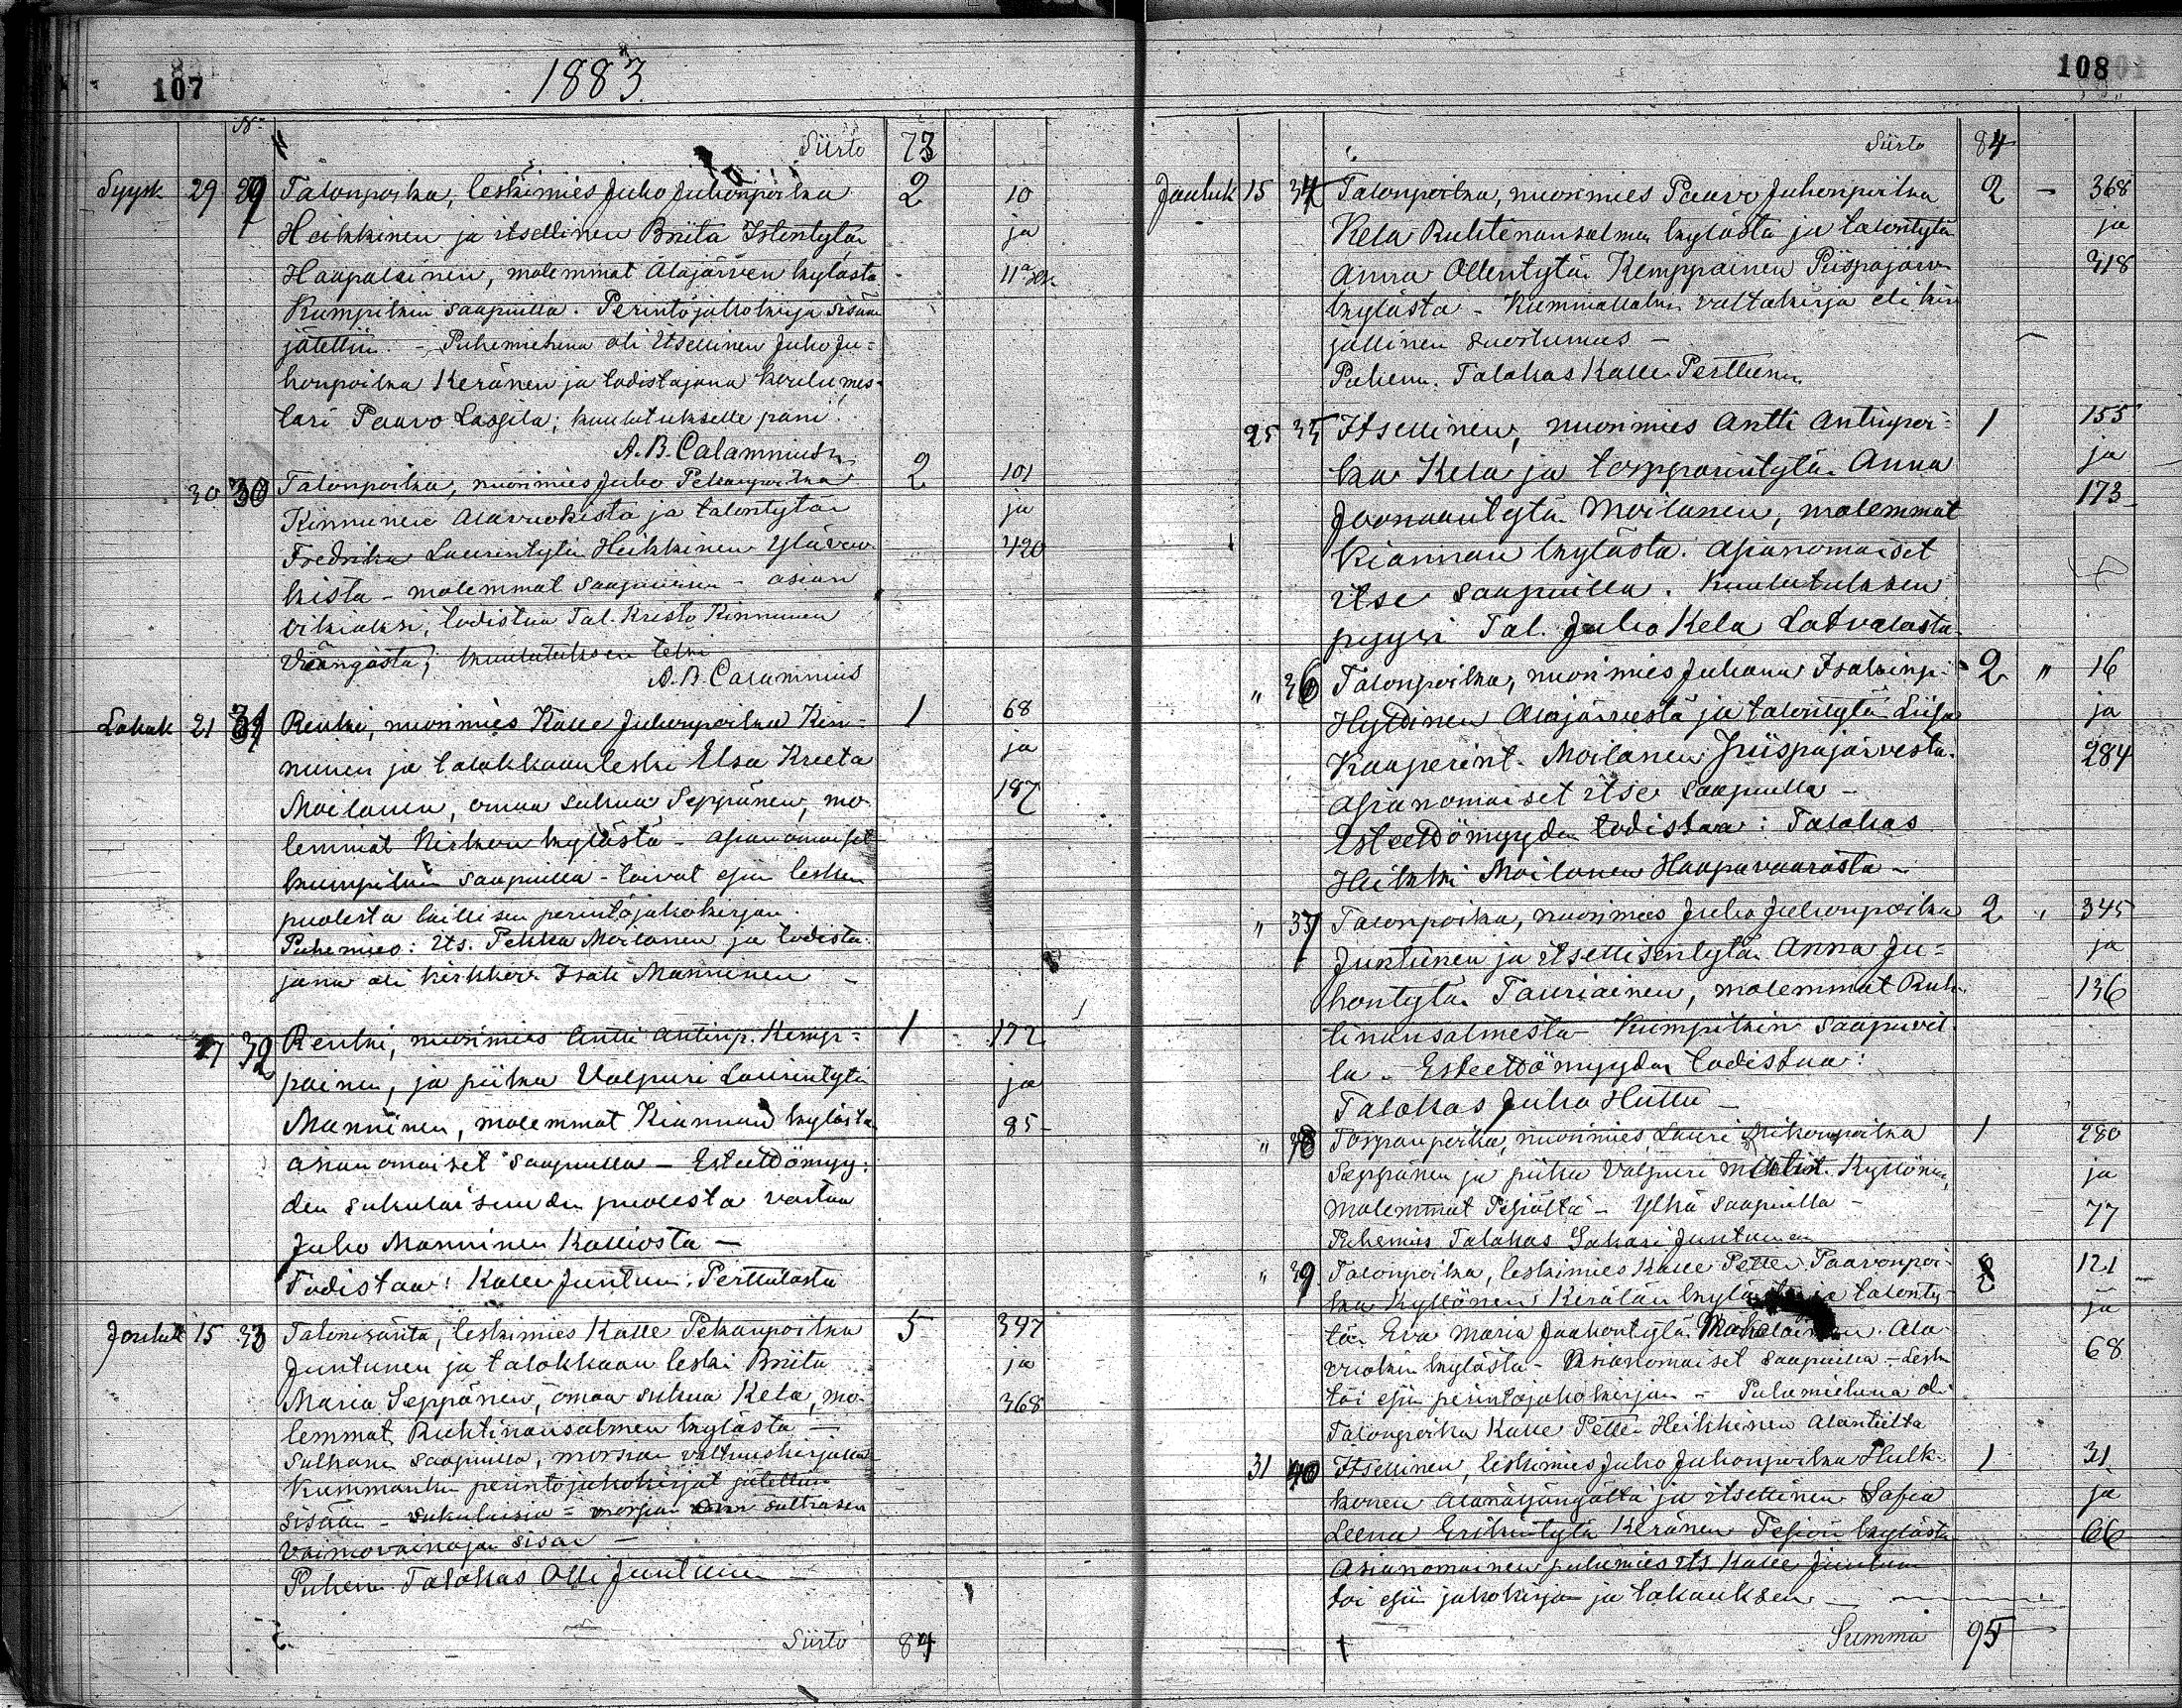 107
1883
No
Siirto 73
Syysk 29 29 Talonpoika, leskimies Juho Juhonpoika 2 10
Heikkinen ja itsellinen Briita Istentytär ja
Haapalainen, molemmat Alajärven kylästä 11
Kumpikin saapuilla. Perintöjakokirja sisään
jätettiin. - Puhemiehenä oli Itsellinen Juho Ju=
honpoika Keränen ja todistajana koulumes-
tari Paavo Laegila; kuulutukselle pani
A. B. Calamnius
30 30 Talonpoika, nuorimies Juho Pekanpoika 2 101
Kinnunen Alavuokista ja talontytär ja
Fredrika Laurintytär Heikkinen Ylävuo- 420
kista - molemmat saapuivin - asian
oikiaksi, todistaa Tal. Kristo Kinnunen
Viängästä; kuulutuksen teki
A. B. Calamnius
Lokak 21 31 Renki, nuorimies Kalle Juhonpoika Kin- 1 68
nunen ja talokkaan leski Elsa Kreeta ja
Moilanen, omaa sukua Seppänen, mo- 187
lemmat Kirkon kylästä - Asianomaiset
kumpikin saapuilla - toivat esiin lesken
puolesta laillisen perintöjakokirjan.
Puhemies: Its. Pekka Moilanen ja todista-
jana oli kirkkov. Isak Manninen -
27 32 Renki, nuorimies Antti Antinp. Kemp= 1 172
painen, ja piika Valpuri Laurintytär ja
Manninen, molemmat Kiannan kylästä 85-
asianomaiset saapuilla - Esteettömyy-
den sukulaisuuden puolesta vastaa
Juho Manninen Kalliosta -
Todistaa: Kalle Juntunen Perttulasta
Jouluk 15 33 Talonisäntä, leskimies Kalle Pekanpoika 5 347
Juntunen ja talokkaan leski Briita ja
Maria Seppänen, omaa sukua Kela, mo- 368
lemmat Ruhtinansalmen kylästä -
Sulhanen saapuilla, morsian valtuuskirjalla
Kummankin perintöjakokirjat jätettiin
sisään - sukulaisia = morsian sulhasen
vaimovainajan sisar -
Puhem. Talokas Olli Juntunen
Siirto 84
108
Siirto 84
Jouluk 15 34 Talonpoika, nuorimies Paavo Juhonpoika 2 - 368
Kela Ruhtinansalmen kylästä ja talontytär ja
Anna Ollentytär Kemppainen Piispajärven 318
kylästä - Kummallakin valtakirja eli kir
jallinen suostumus -
Puhem. Talokas Kalle Perttunen
25 35 Itsellinen, nuorimies Antti Antinpoi- 1 155
ka Kela ja torpparintytär Anna ja
Joonaantytär Moilanen, molemmat 173
Kiannan kylästä. Asianomaiset
itse saapuilla. Kuulutuksen
pyysi Tal. Juho Kela Latvalasta
" 36 Talonpoika, nuorimies Juhana Isakinp. 2 " 16
Hyttinen Alajärvestä ja talontytär Liisa ja
Kaaperint. Moilanen Piispajärvestä. 284
Asianomaiset itse saapuilla -
Esteettömyyden todistaa: Talokas
Heikki Moilanen Haapavaarasta -
" 37 Talonpoika, nuorimies Juho Juhonpoika 2 " 345
Juntunen ja itsellisentytär Anna Ju= ja
hontytär Tauriainen, molemmat Ruh- 136
tinansalmesta - Kumpikin saapuvil
la - Esteettömyyden todistaa:
Talokas Juho Huttu -
" 38 Torpanpoika, nuorimies Lauri Mikonpoika 1 280
Seppänen ja piika Valpuri Matint. Kyllönen, ja
molemmat Pesiöltä - Ylkä saapuilla - 77
Puhemies Talokas Sakari Juntunen
" 39 Talonpoika, leskimies Kalle Petter Paavonpoi- 2 121
ka Kyllönen Kerälän kylästä ja talonty- ja
tär Eva Maria Jaakontytär Mahalainen Ala- 68
vuokin kylästä - Asianomaiset saapuilla - Leski
toi esiin perintöjakokirjan - Puhemiehenä oli
Talonpoika Kalle Petter Heikkinen Alantieltä
31 40 Itsellinen, leskimies Juho Juhonpoika Hulk- 1 31
konen Alanäljängältä ja itsellinen Safia ja
Leena Erikintytär Keränen Pesiön kylästä 66
Asianomainen puhemies Its Kalle Juntunen
toi esiin jakokirjan ja takauksen -
Summa 95